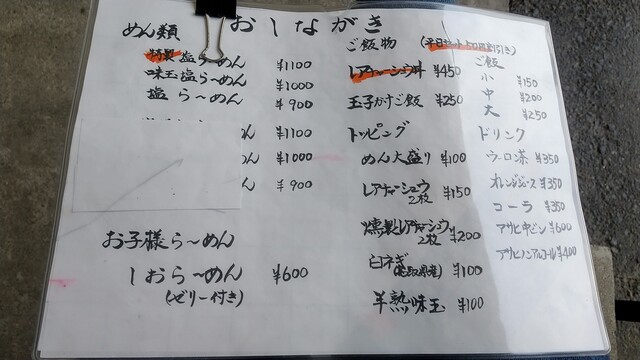 おしながき
めん類
特製塩らーめん ¥1100
味玉塩らーめん ¥1000
塩らーめん ¥900
めん ¥1100
めん ¥1000
ん ¥900
お子様らーめん
しおらーめん ¥600
(ゼリー付き)
ご飯物 (平日セット50円割引き)
レアチャーシュウ丼 ¥450
玉子かけご飯 ¥250
トッピング
めん大盛り ¥100
レアチャーシュウ 2枚 ¥150
燻製レアチャーシュウ 2枚 ¥200
白ネギ ¥100
半熟味玉 ¥100
ご飯
小 ¥150
中 ¥200
大 ¥250
ドリンク
ウーロ茶 ¥350
オレンジジュース ¥350
コーラ ¥350
アサヒ中ビン ¥600
アサヒノンアルコール ¥400